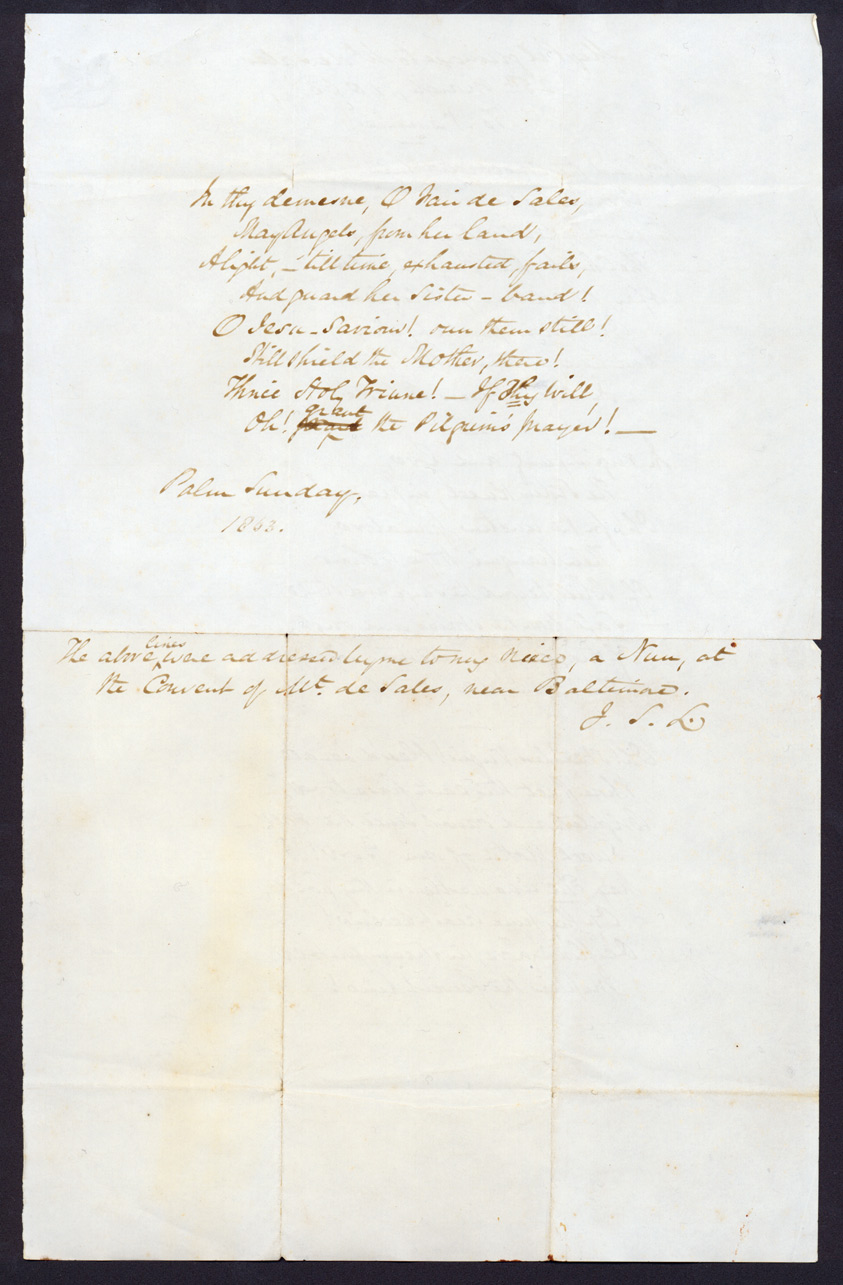 In thy demesne, O Fair de Sales,
May Angels, from her land,
Alight, – till time, exhausted, fails,
And guard her Sister – band!
O Jesu – Saviour! own them still!
Still shield the Mother, there!
Thrice Holy Triune! – If Thy Will,
Oh! grant the Pilgrim's prayer! –
Palm Sunday,
1863.
The above lines were addressed by me to my Niece, a Nun, at
the Convent of Mt. de Sales, near Baltimore.
J. S. L.